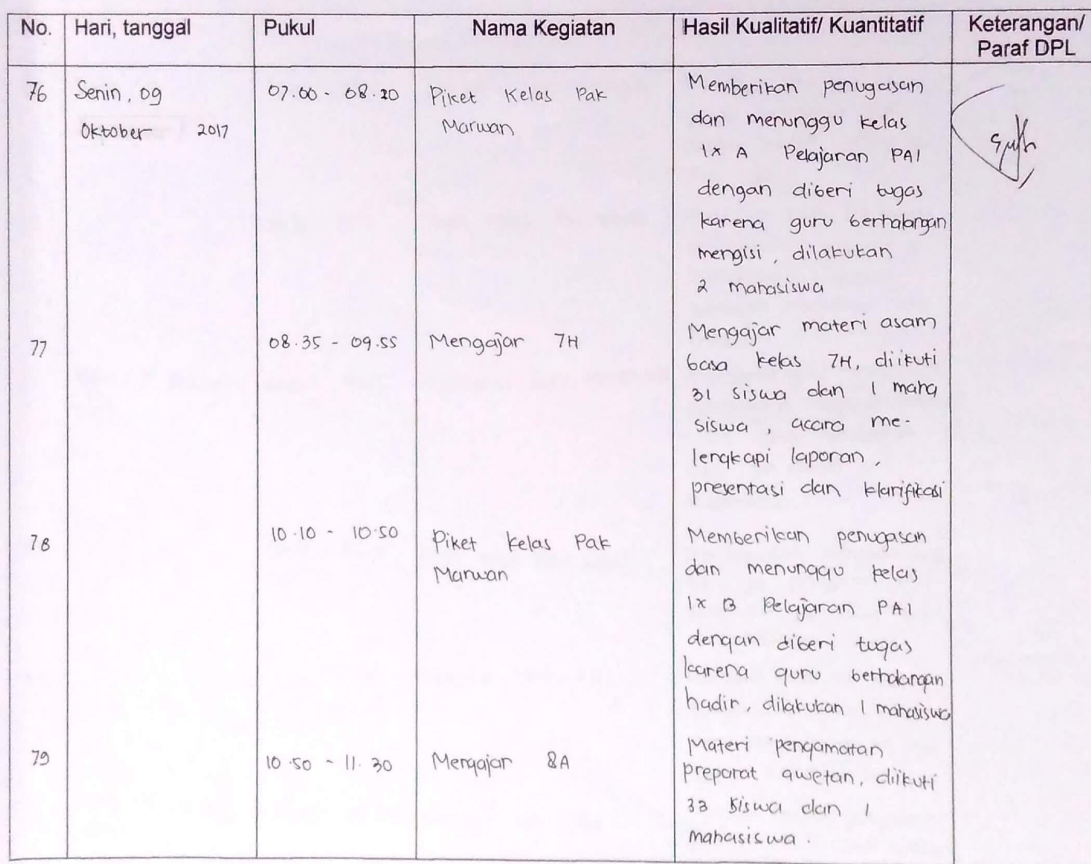 No. Hari, tanggal Pukul Nama Kegiatan Hasil Kualitatif/ Kuantitatif Keterangan/
Paraf DPL
76 Senin, 09 07.00 - 08.20 Piket Kelas Pak Memberikan penugasan
Oktober 2017 Marwan dan menunggu kelas
IX A Pelajaran PAI
dengan diberi tugas
karena guru berhalangan
mengisi, dilakukan
2 mahasiswa
77 08.35 - 09.55 Mengajar 7H Mengajar materi asam
basa kelas 7H, diikuti
31 siswa dan 1 maha
siswa, acara me-
lengkapi laporan,
presentasi dan klarifikasi
78 10.10 - 10.50 Piket Kelas Pak Memberikan penugasan
Marwan dan menunggu kelas
IX B Pelajaran PAI
dengan diberi tugas
karena guru berhalangan
hadir, dilakukan 1 mahasiswa
79 10.50 - 11.30 Mengajar 8A Materi pengamatan
preparat awetan, diikuti
33 siswa dan 1
mahasiswa.